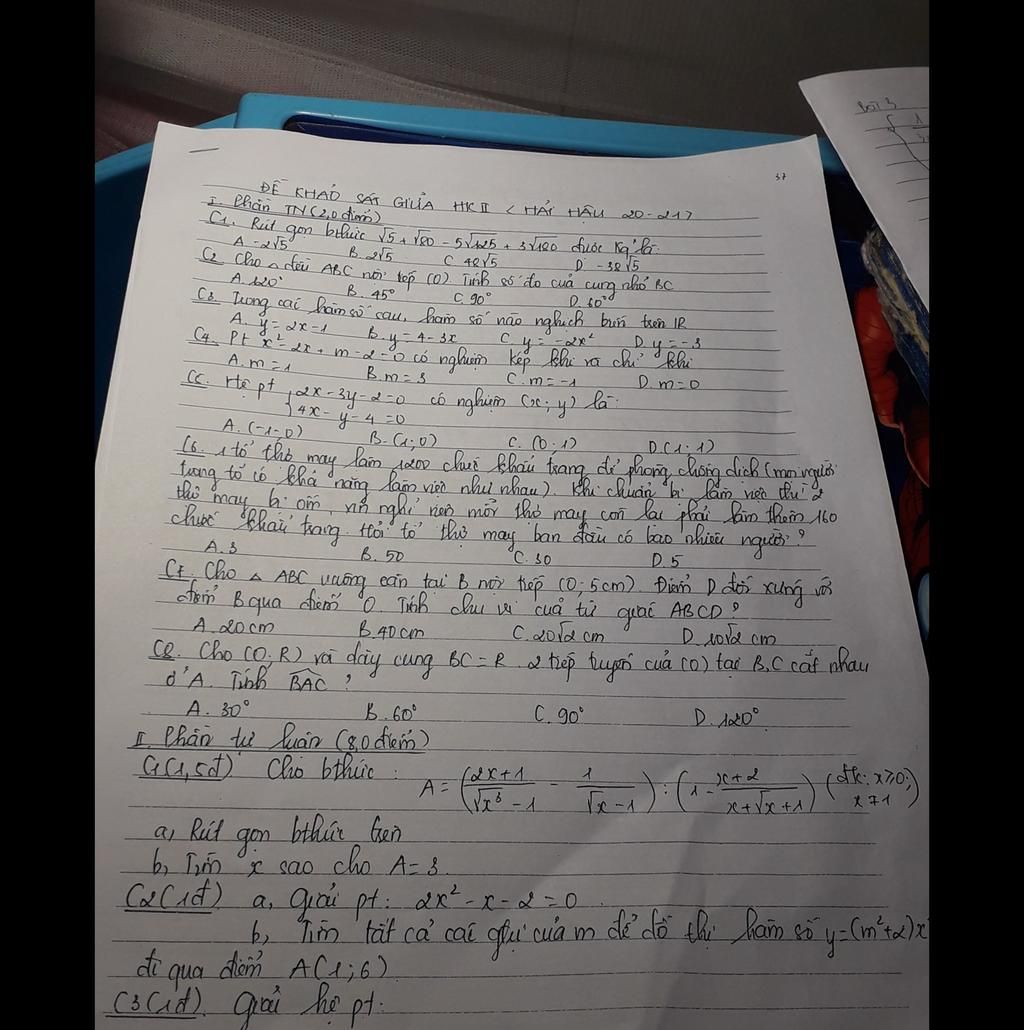 37
ĐỀ KHẢO SÁT GIỮA HKII < HẢI HẬU 20-21>
I. Phần TN (2,0 điểm)
C1. Rút gọn bthức √5 + √80 - 5√125 + 3√180 được kq là:
A. -2√5 B. 2√5 C. 42√5 D. -32√5
C2. Cho △ đều ABC nội tiếp (O). Tính số đo của cung nhỏ BC
A. 120° B. 45° C. 90° D. 60°
C3. Trong các hàm số sau, hàm số nào nghịch biến trên IR
A. y = 2x-1 B. y = 4-3x C. y = -2x² D. y = -3
C4. Pt x² - 2x + m - 2 = 0 có nghiệm kép khi và chỉ khi
A. m = 1 B. m = 3 C. m = -1 D. m = 0
C5. Hệ pt { 2x - 3y - 2 = 0 có nghiệm (x; y) là:
4x - y - 4 = 0
A. (-1; 0) B. (1; 0) C. (0; 1) D. (1; 1)
C6. 1 tổ thợ may làm 1200 chiếc khẩu trang để phòng chống dịch (mọi người
trong tổ có khả năng làm việc như nhau). Khi chuẩn bị làm việc thì 2
thợ may bị ốm, xin nghỉ nên mỗi thợ may còn lại phải làm thêm 160
chiếc khẩu trang. Hỏi tổ thợ may ban đầu có bao nhiêu người?
A. 3 B. 50 C. 30 D. 5
C7. Cho △ ABC vuông cân tại B nội tiếp (O; 5cm). Điểm D đối xứng với
điểm B qua điểm O. Tính chu vi của tứ giác ABCD?
A. 20cm B. 40cm C. 20√2 cm D. 10√2 cm
C8. Cho (O; R) và dây cung BC = R. 2 tiếp tuyến của (O) tại B, C cắt nhau
ở A. Tính BAC ?
A. 30° B. 60° C. 90° D. 120°
II. Phần tự luận (8,0 điểm)
C1 (1,5đ) Cho bthức : A = (2x+1 / √x³ - 1 - 1 / √x - 1) : (1 - x+2 / x+√x+1) (đk: x≥0; x≠1)
a, Rút gọn bthức trên
b, Tìm x sao cho A = 3.
C2 (1đ) a, Giải pt: 2x² - x - 2 = 0
b, Tìm tất cả các gtrị của m để đồ thị hàm số y = (m²+2)x²
đi qua điểm A(1; 6)
C3 (1đ). Giải hệ pt: